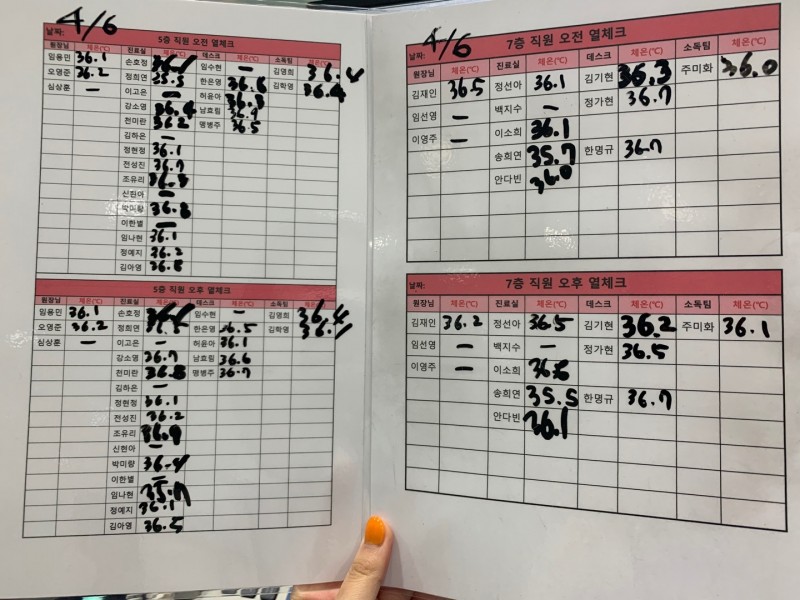 날짜: 4/6
5층 직원 오전 열체크
원장님 체온(℃) 진료실 체온(℃) 데스크 체온(℃) 소독팀 체온(℃)
임용민 36.1 손호정 임수현 — 김영희 36.4
오영준 36.2 정희연 35.5 한은영 36.6 김학영 36.4
심상훈 — 이고은 — 허윤아 36.3
강소영 36.4 남효림 36.9
천미란 36.2 맹병주 36.5
김하은 —
정현정 36.1
전성진 36.7
조유리 36.3
신현아 —
박미랑 36.3
이한별 —
임나현 36.1
정예지 36.2
김아영 36.5
5층 직원 오후 열체크
원장님 체온(℃) 진료실 체온(℃) 데스크 체온(℃) 소독팀 체온(℃)
임용민 36.1 손호정 임수현 — 김영희 36.4
오영준 36.2 정희연 한은영 36.5 김학영
심상훈 — 이고은 — 허윤아 36.1
강소영 36.7 남효림 36.6
천미란 36.8 맹병주 36.7
김하은 —
정현정 36.1
전성진 36.2
조유리 36.9
신현아 —
박미랑 36.4
이한별 —
임나현 35.7
정예지 36.1
김아영 36.5
날짜: 4/6
7층 직원 오전 열체크
원장님 체온(℃) 진료실 체온(℃) 데스크 체온(℃) 소독팀 체온(℃)
김재인 36.5 정선아 36.1 김기현 36.3 주미화 36.0
임선영 — 백지수 — 정가현 36.7
이영주 — 이소희 36.1
송희연 35.7 한명규 36.7
안다빈 36.0
날짜:
7층 직원 오후 열체크
원장님 체온(℃) 진료실 체온(℃) 데스크 체온(℃) 소독팀 체온(℃)
김재인 36.2 정선아 36.5 김기현 36.2 주미화 36.1
임선영 — 백지수 — 정가현 36.5
이영주 — 이소희 36.6
송희연 35.5 한명규 36.7
안다빈 36.1